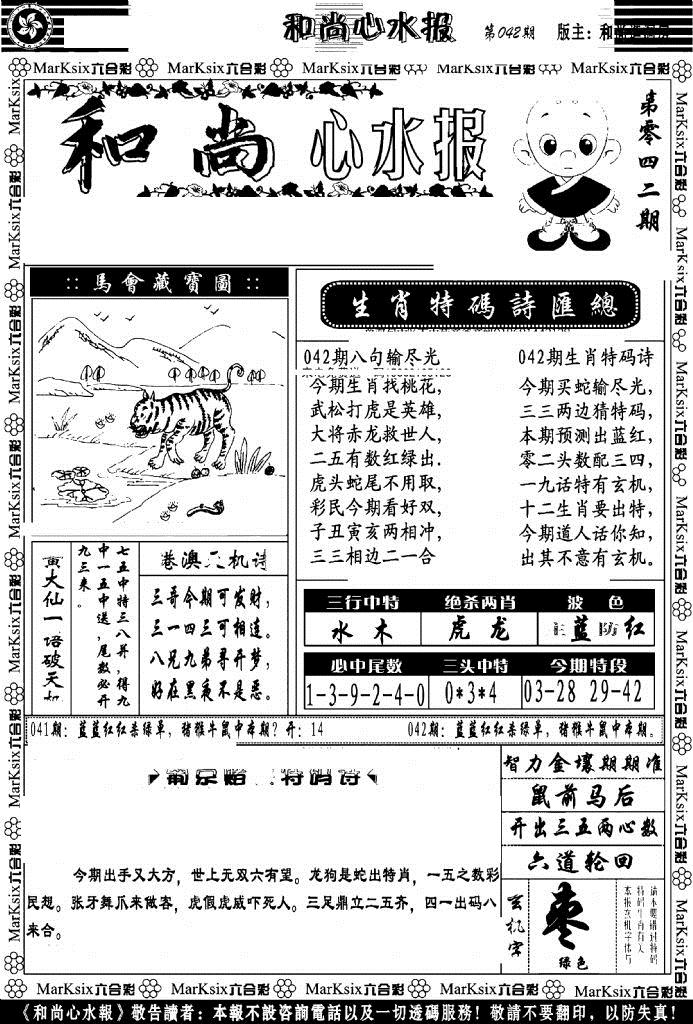 和尚心水报 第042期 版主：和
MarKsix六合彩 MarKsix六合彩 MarKsix六合彩 MarKsix六合彩 MarKsix六合彩
和尚 心水报
第零四二期
:: 馬會藏寶圖 ::
生肖特碼詩匯總
042期八句输尽光
今期生肖找桃花，
武松打虎是英雄，
大将赤龙救世人，
二五有数红绿出.
虎头蛇尾不用取，
彩民今期看好双，
子丑寅亥两相冲，
三三相边二一合
042期生肖特码诗
今期买蛇输尽光，
三三两边猜特码，
本期预测出蓝红，
零二头数配三四，
一九话特有玄机，
十二生肖要出特，
今期道人话你知，
出其不意有玄机。
黄大仙一语破天
七五中特三八昇，得九
中一五中送，尾数必开
九三来。
港澳天机诗
三哥今期可发财，
三一四三可相连。
八兄九弟寻开梦，
好在黑夜不是恶。
三行中特 绝杀两肖 波色
水木 虎龙 主蓝防红
必中尾数 三头中特 今期特段
1-3-9-2-4-0 0*3*4 03-28 29-42
041期：蓝蓝红红杀绿单，猪猴牛鼠中本期？开：14
042期：蓝蓝红红杀绿单，猪猴牛鼠中本期。
特码诗
今期出手又大方，世上无双六有望。龙狗是蛇出特肖，一五之数彩
民想。张牙舞爪来做客，虎假虎威吓死人。三足鼎立二五齐，四一出码八
来合。
智力金壤期期准
鼠前马后
开出三五两心数
六道轮回
玄机字
枣
绿色
MarKsix六合彩 MarKsix六合彩 MarKsix六合彩 MarKsix六合彩 MarKsix六合彩
《和尚心水報》敬告讀者：本報不設咨詢電話以及一切透碼服務！敬請不要翻印，以防失真！